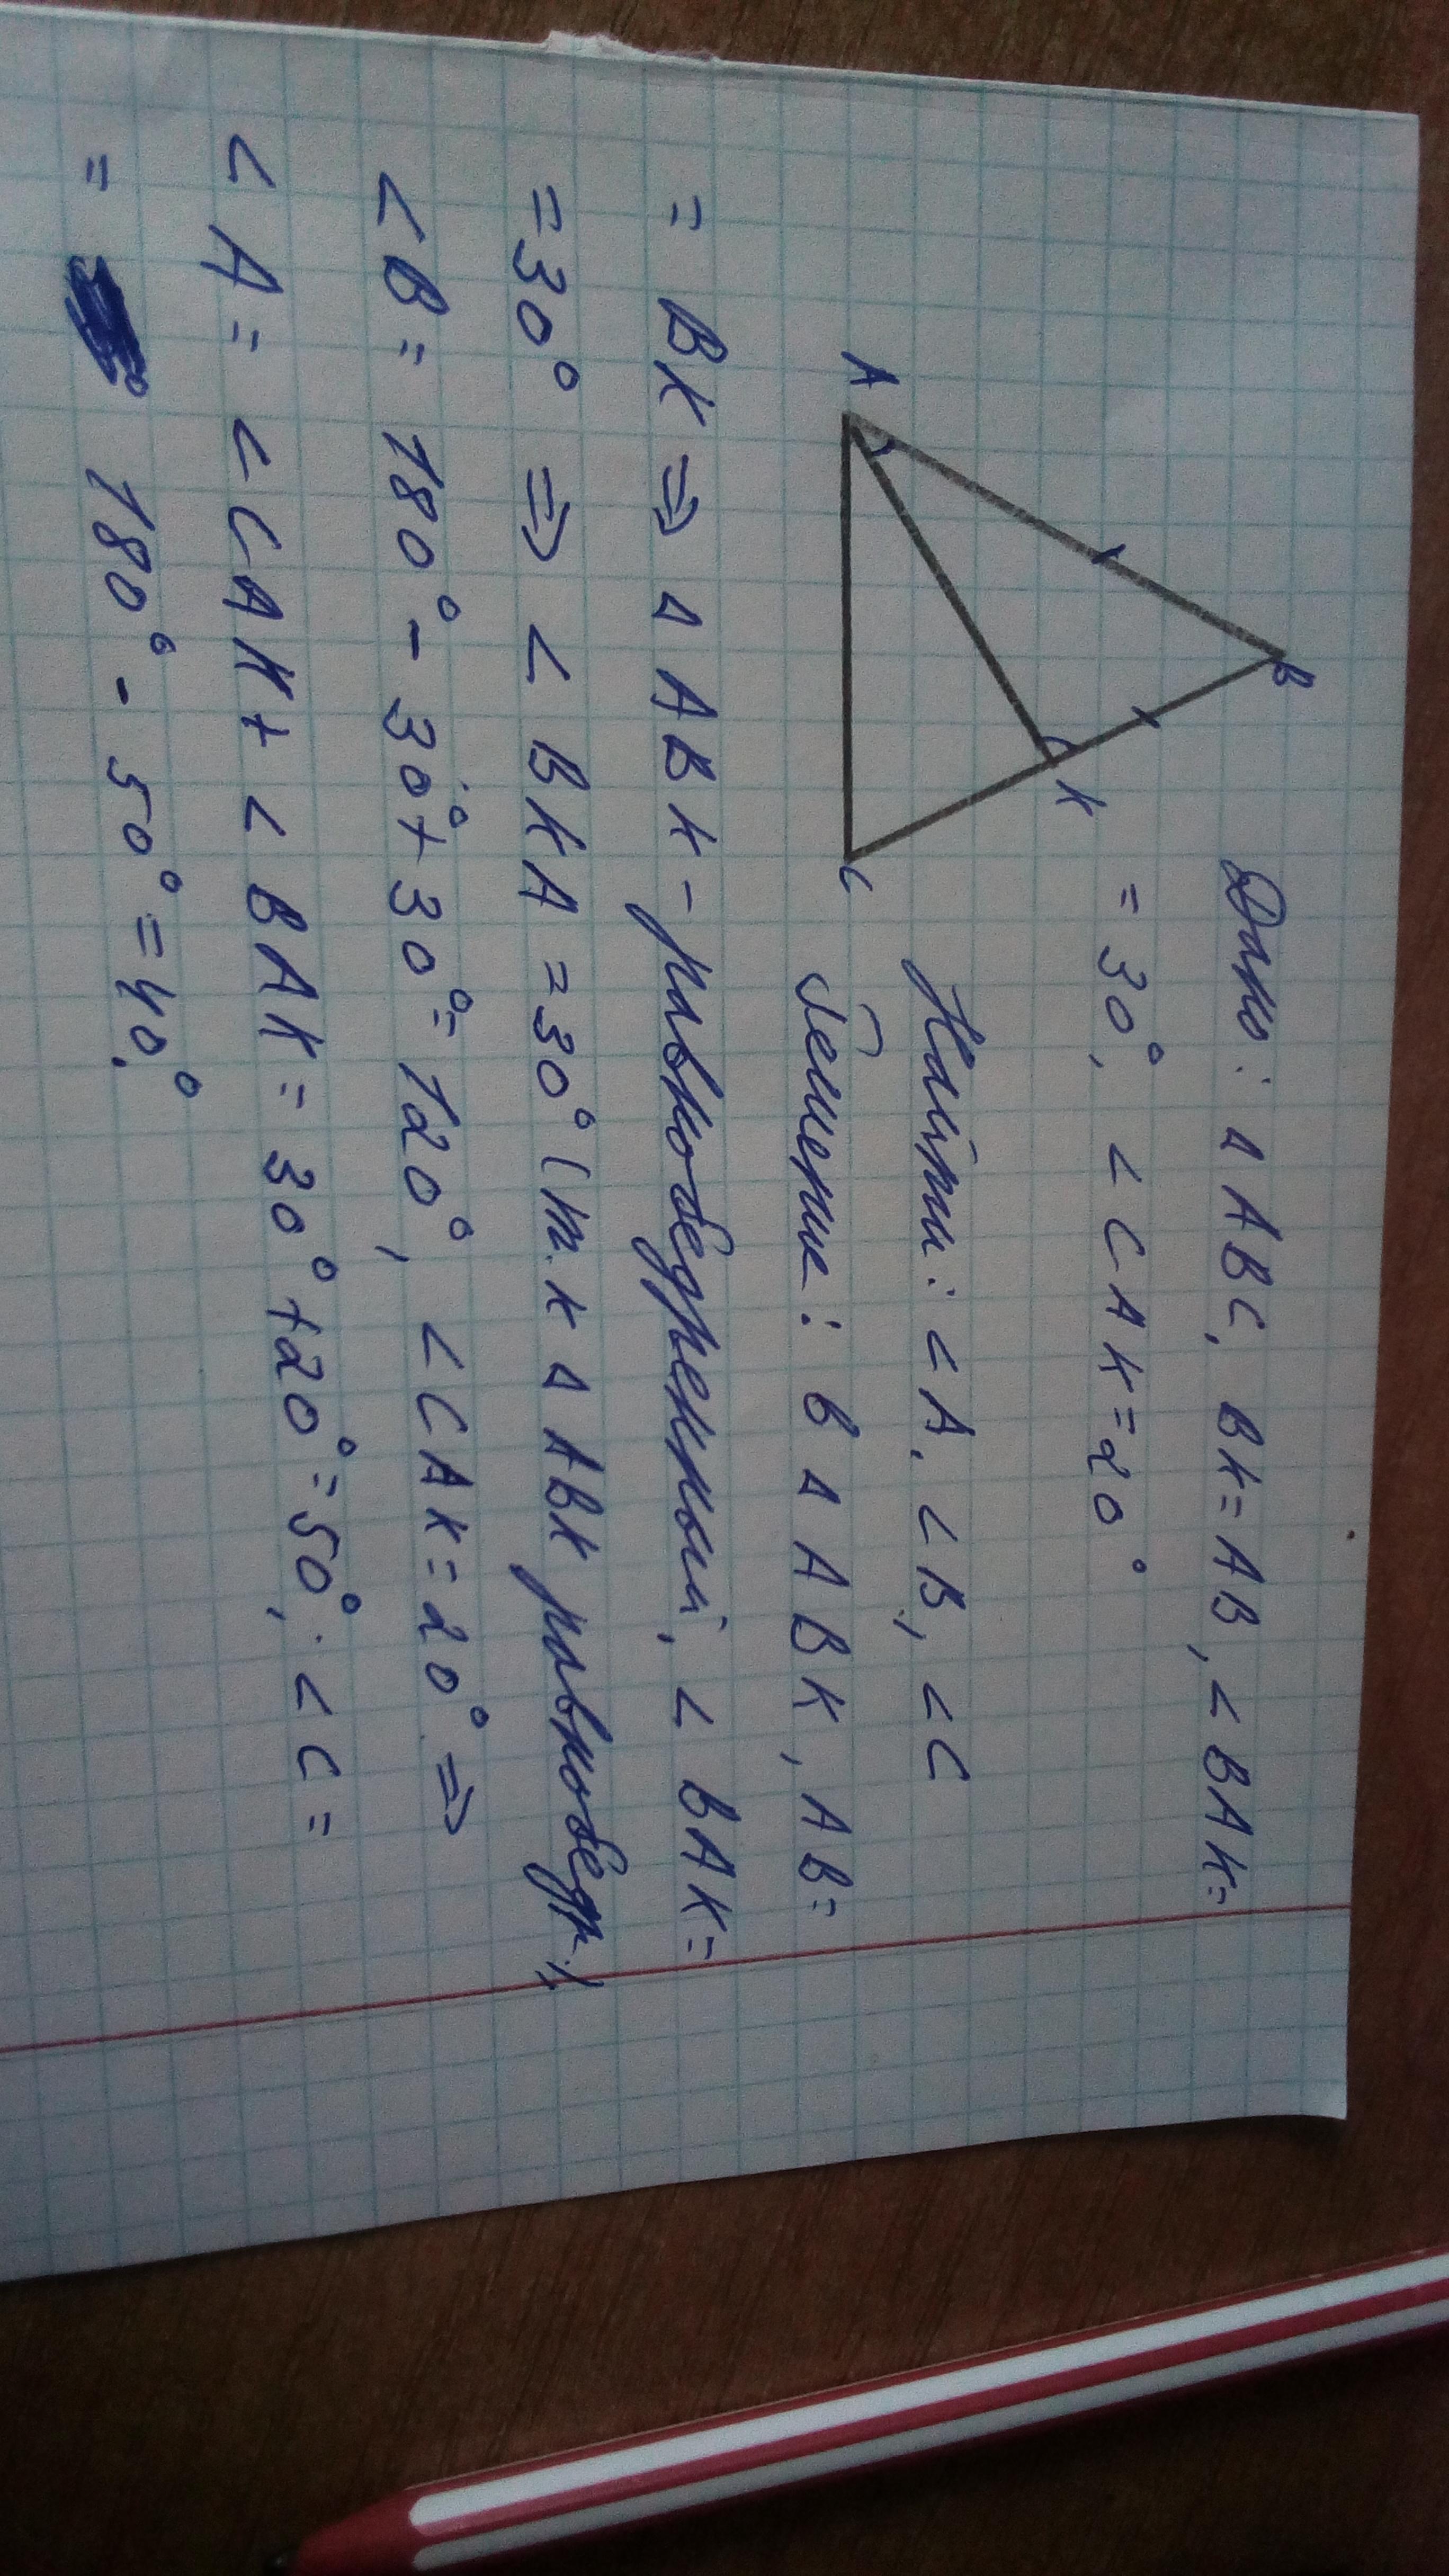 B
A
K
C
Дано: △ABC, BK=AB, <BAK=
=30°, <CAK=20°
Найти: <A, <B, <C
Решение: в △ABK, AB=
= BK ⇒ △ABK - равнобедренный, <BAK=
=30° ⇒ <BKA=30° (т.к △ABK равнобедр.),
<B= 180° - 30°+30°= 120°, <CAK=20° ⇒
<A= <CAK+ <BAK= 30°+20°=50°, <C=
= 180° - 50°=40.°